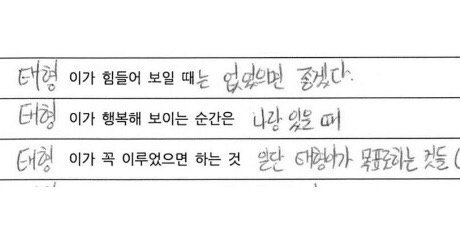 태형 이가 힘들어 보일 때는 없었으면 좋겠다.
태형 이가 행복해 보이는 순간은 나랑 있을 때
태형 이가 꼭 이루었으면 하는 것 일단 태형이가 목표로하는 것들 (